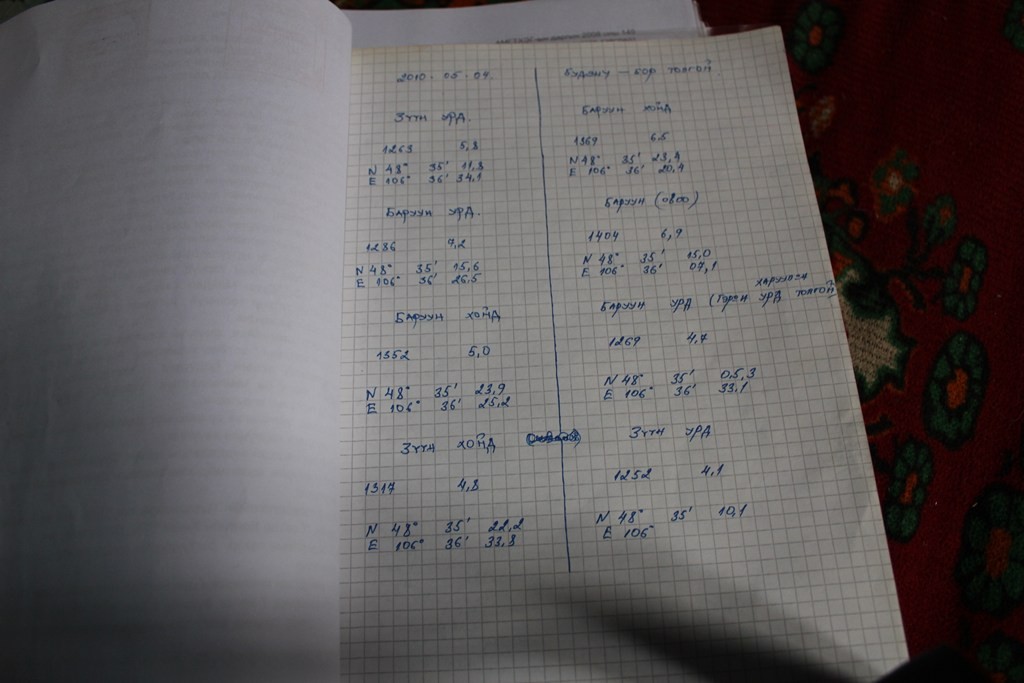 2010 . 05 . 04.
Зүүн урд.
1263 5,8
N 48° 35' 11,8
E 106° 36' 34,1
Баруун урд.
1286 7,2
N 48° 35' 15,6
E 106° 36' 26,5
Баруун хойд
1352 5,0
N 48° 35' 23,9
E 106° 36' 25,2
Зүүн хойд
1317 4,8
N 48° 35' 22,2
E 106° 36' 33,8
– Бор толгой.
Баруун хойд
1369 6.5
N 48° 35' 23,4
E 106° 36' 20,4
Баруун (овоо)
1404 6,9
N 48° 35' 15,0
E 106° 36' 07,1
Баруун урд урд толгой
1269 4,7
N 48° 35' 0,5,3
E 106° 36' 33,1
Зүүн урд
1252 4,1
N 48° 35' 10,1
E 106°